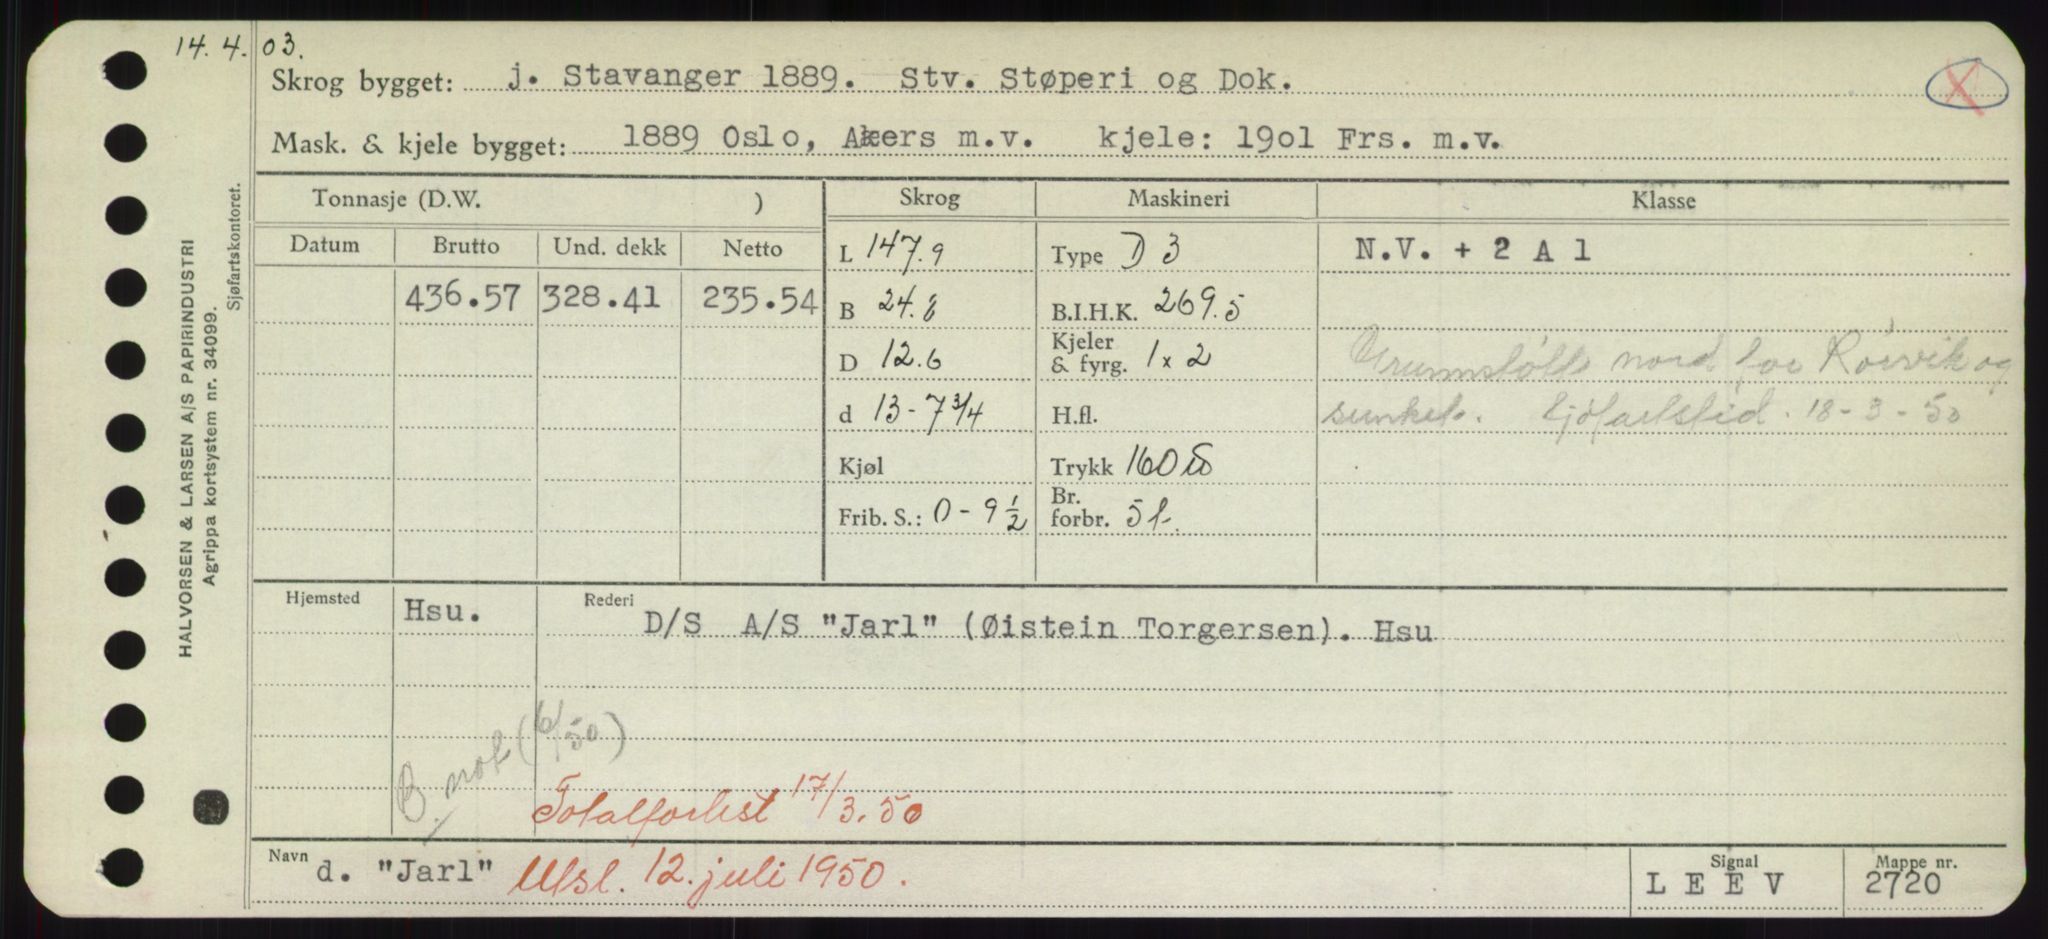 14. 4. 03.
Skrog bygget: j. Stavanger 1889. Stv. Støperi og Dok.
Mask. & kjele bygget: 1889 Oslo, Akers m.v. kjele: 19o1 Frs. m.v.
Tonnasje (D.W. ) Skrog Maskineri Klasse
Datum Brutto Und. dekk Netto
L 147.9 Type D 3 N.V. + 2 A 1
436.57 328.41 235.54 B 24.8 B.I.H.K. 269.5
D 12.6 Kjeler & fyrg. 1 x 2 Grunnstøtte nord for Rørvik og
d 13 - 7 3/4 H.fl. sunket. Sjöfartstid. 18 - 3 - 50
Kjøl Trykk 160 lb
Frib. S.: 0 - 9 1/2 Br. forbr. 5 t.
Hjemsted Hsu. Rederi D/S A/S "Jarl" (Øistein Torgersen). Hsu
B. not (6/50)
Totalforlist 17/3.50
Navn d. "Jarl" Utsl. 12. juli 1950. Signal L E E V Mappe nr. 2720
HALVORSEN & LARSEN A/S PAPIRINDUSTRI
Agrippa kortsystem nr. 34099.
Sjøfartskontoret.